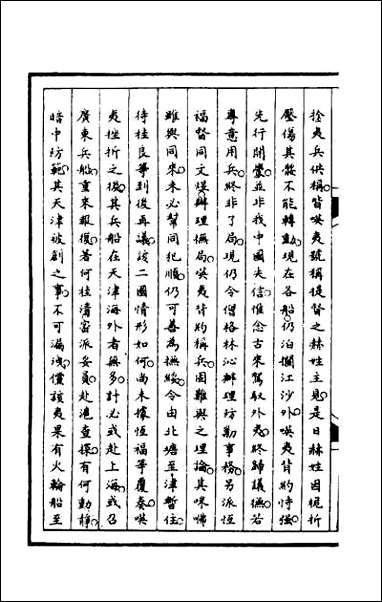 捡夷兵供稱皆唤夷號稱提督之赫姓主見是日赫姓因桅折
壓傷其髌不能轉動現在各船仍泊攔江沙外唤夷背約恃强
先行開釁並非我中國失信惟念古來駕馭外夷終歸議撫若
專意用兵終非了局現仍令僧格林沁辦理防勦事務另派恆
福督同文煜辦理撫局唤夷背約稱兵固難與之理論其咪𠵽
雖與同來未必幫同犯順仍可善為撫綏令由北塘至津暫住
待桂良等到後再議該二國情形如何尚未據恆福等覆奏唤
夷挫折之後其兵船在天津海外者無多計必或赴上海或召
廣東兵船重來報復著何桂清密派妥員赴滬查探有何動靜
暗中防範其天津被創之事不可漏洩儻該夷果有火輪船至